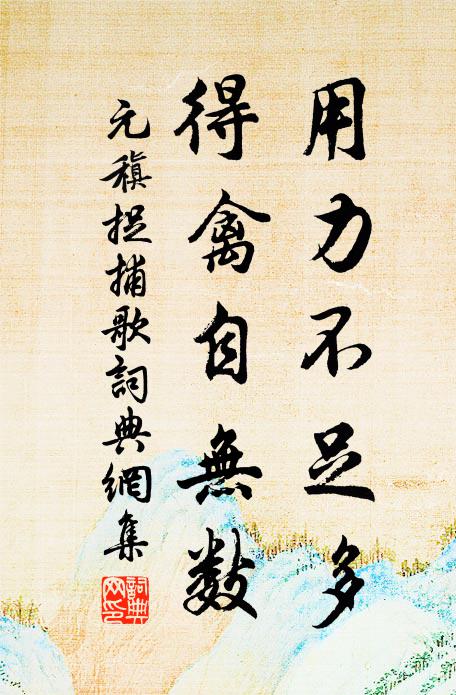 用力不足多
得禽自無數
元稹捉捕歌詞典網集
詞典網印